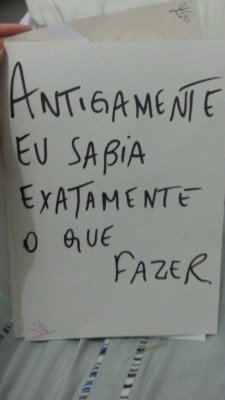 ANTIGAMENTE
EU SABIA
EXATAMENTE
O QUE
FAZER